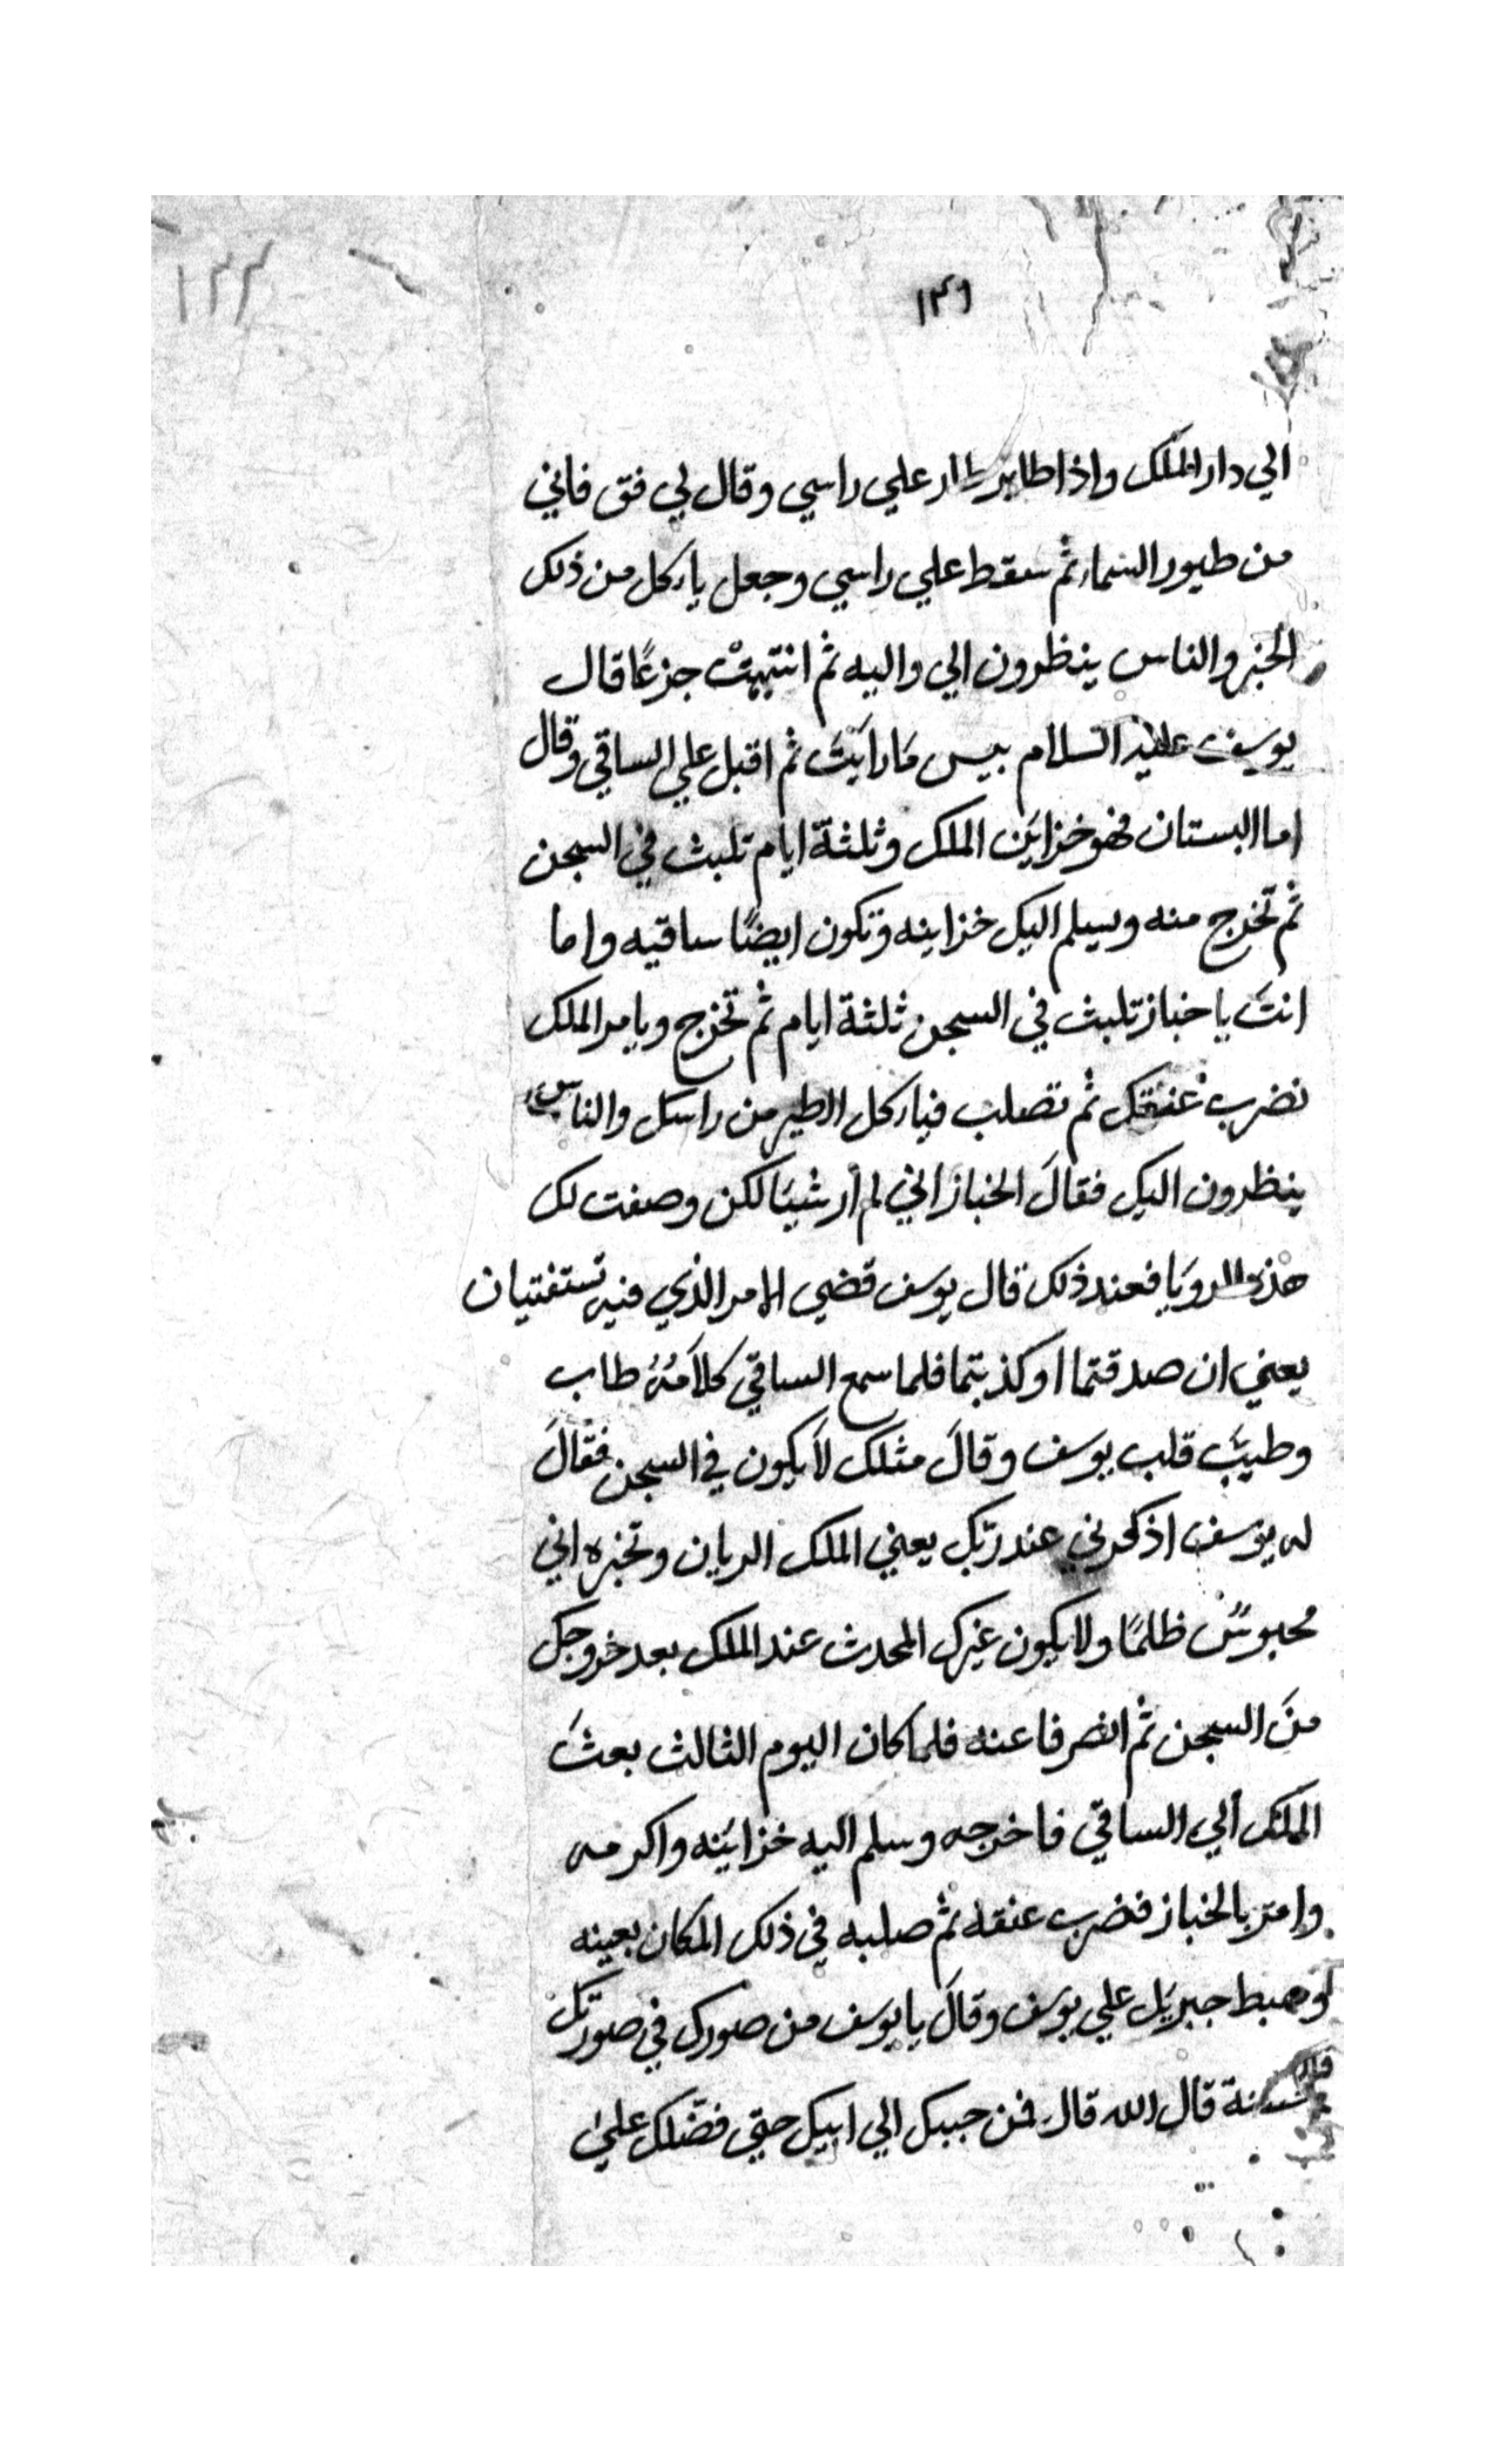 ١٢٣
١٣٦
الي دار الملك واذا طاير طار علي راسي وقال لي فق فاني
من طيور السماء ثم سقط علي راسي وجعل ياركل من ذلك
الخبز والناس ينظرون الي واليه ثم انتبهتْ جزعًا قال
يوسف عليه السلام بيس مَا رايَتَ ثم اقبل علي الساقي وقال
اما البستان فهو خزاين الملك وثلثة ايام تلبث في السجن
ثم تخرج منه ويسلم اليك خزاينه وتكون ايضًا ساقيه واما
انتَ يا خباز تلبث في السجن ثلثة ايام ثم تخرج ويامر الملك
نضرب عنقك ثم تصلب فياركل الطير من راسك والناس
ينظرون اليك فقالَ الخباز اني لم أر شيئا لكن وصفت لك
هذه الرويَا فعند ذلك قال يوسف قضي الامر الذي فيه تستفتيان
يعني ان صدقتما او كذبتما فلما سمع الساقي كلاَمَهُ طاب
وطيَّبَ قلب يوسف وقالَ مثلك لاَ يكون في السجن فقالَ
له يوسف اذكرني عند ربّك يعني الملك الريان وتخبره اني
محبوسٌ ظلمًا ولا يكون غيرك المحدث عند الملك بعد خروجك
منَ السجن ثم انصرفا عنه فلما كان اليوم الثالث بعثَ
الملك الي الساقي فاخرجه وسلم اليه خزاينه واكرمه
وامر بالخباز فضرب عنقه ثم صلبه في ذلك المكان بعينه
وهبط جبريل علي يوسف وقالَ يا يوسف من صورك في صورتك
قال الله قال فمن حببك الي ابيك حتي فضّلك علي